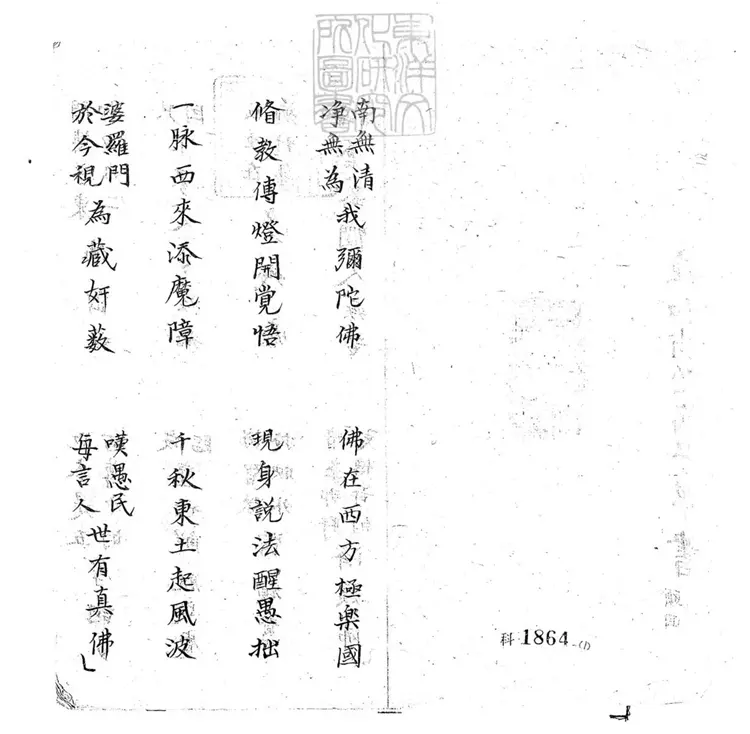 東洋文
化研究
所圖書
南無清
淨無為我彌陀佛
佛在西方極樂國
脩教傳燈開覺悟
現身說法醒愚拙
一脉西來添魔障
千秋東土起風波
婆羅門
於今視為藏奸薮
嘆愚民
每言人世有真佛
科 1864-(1)